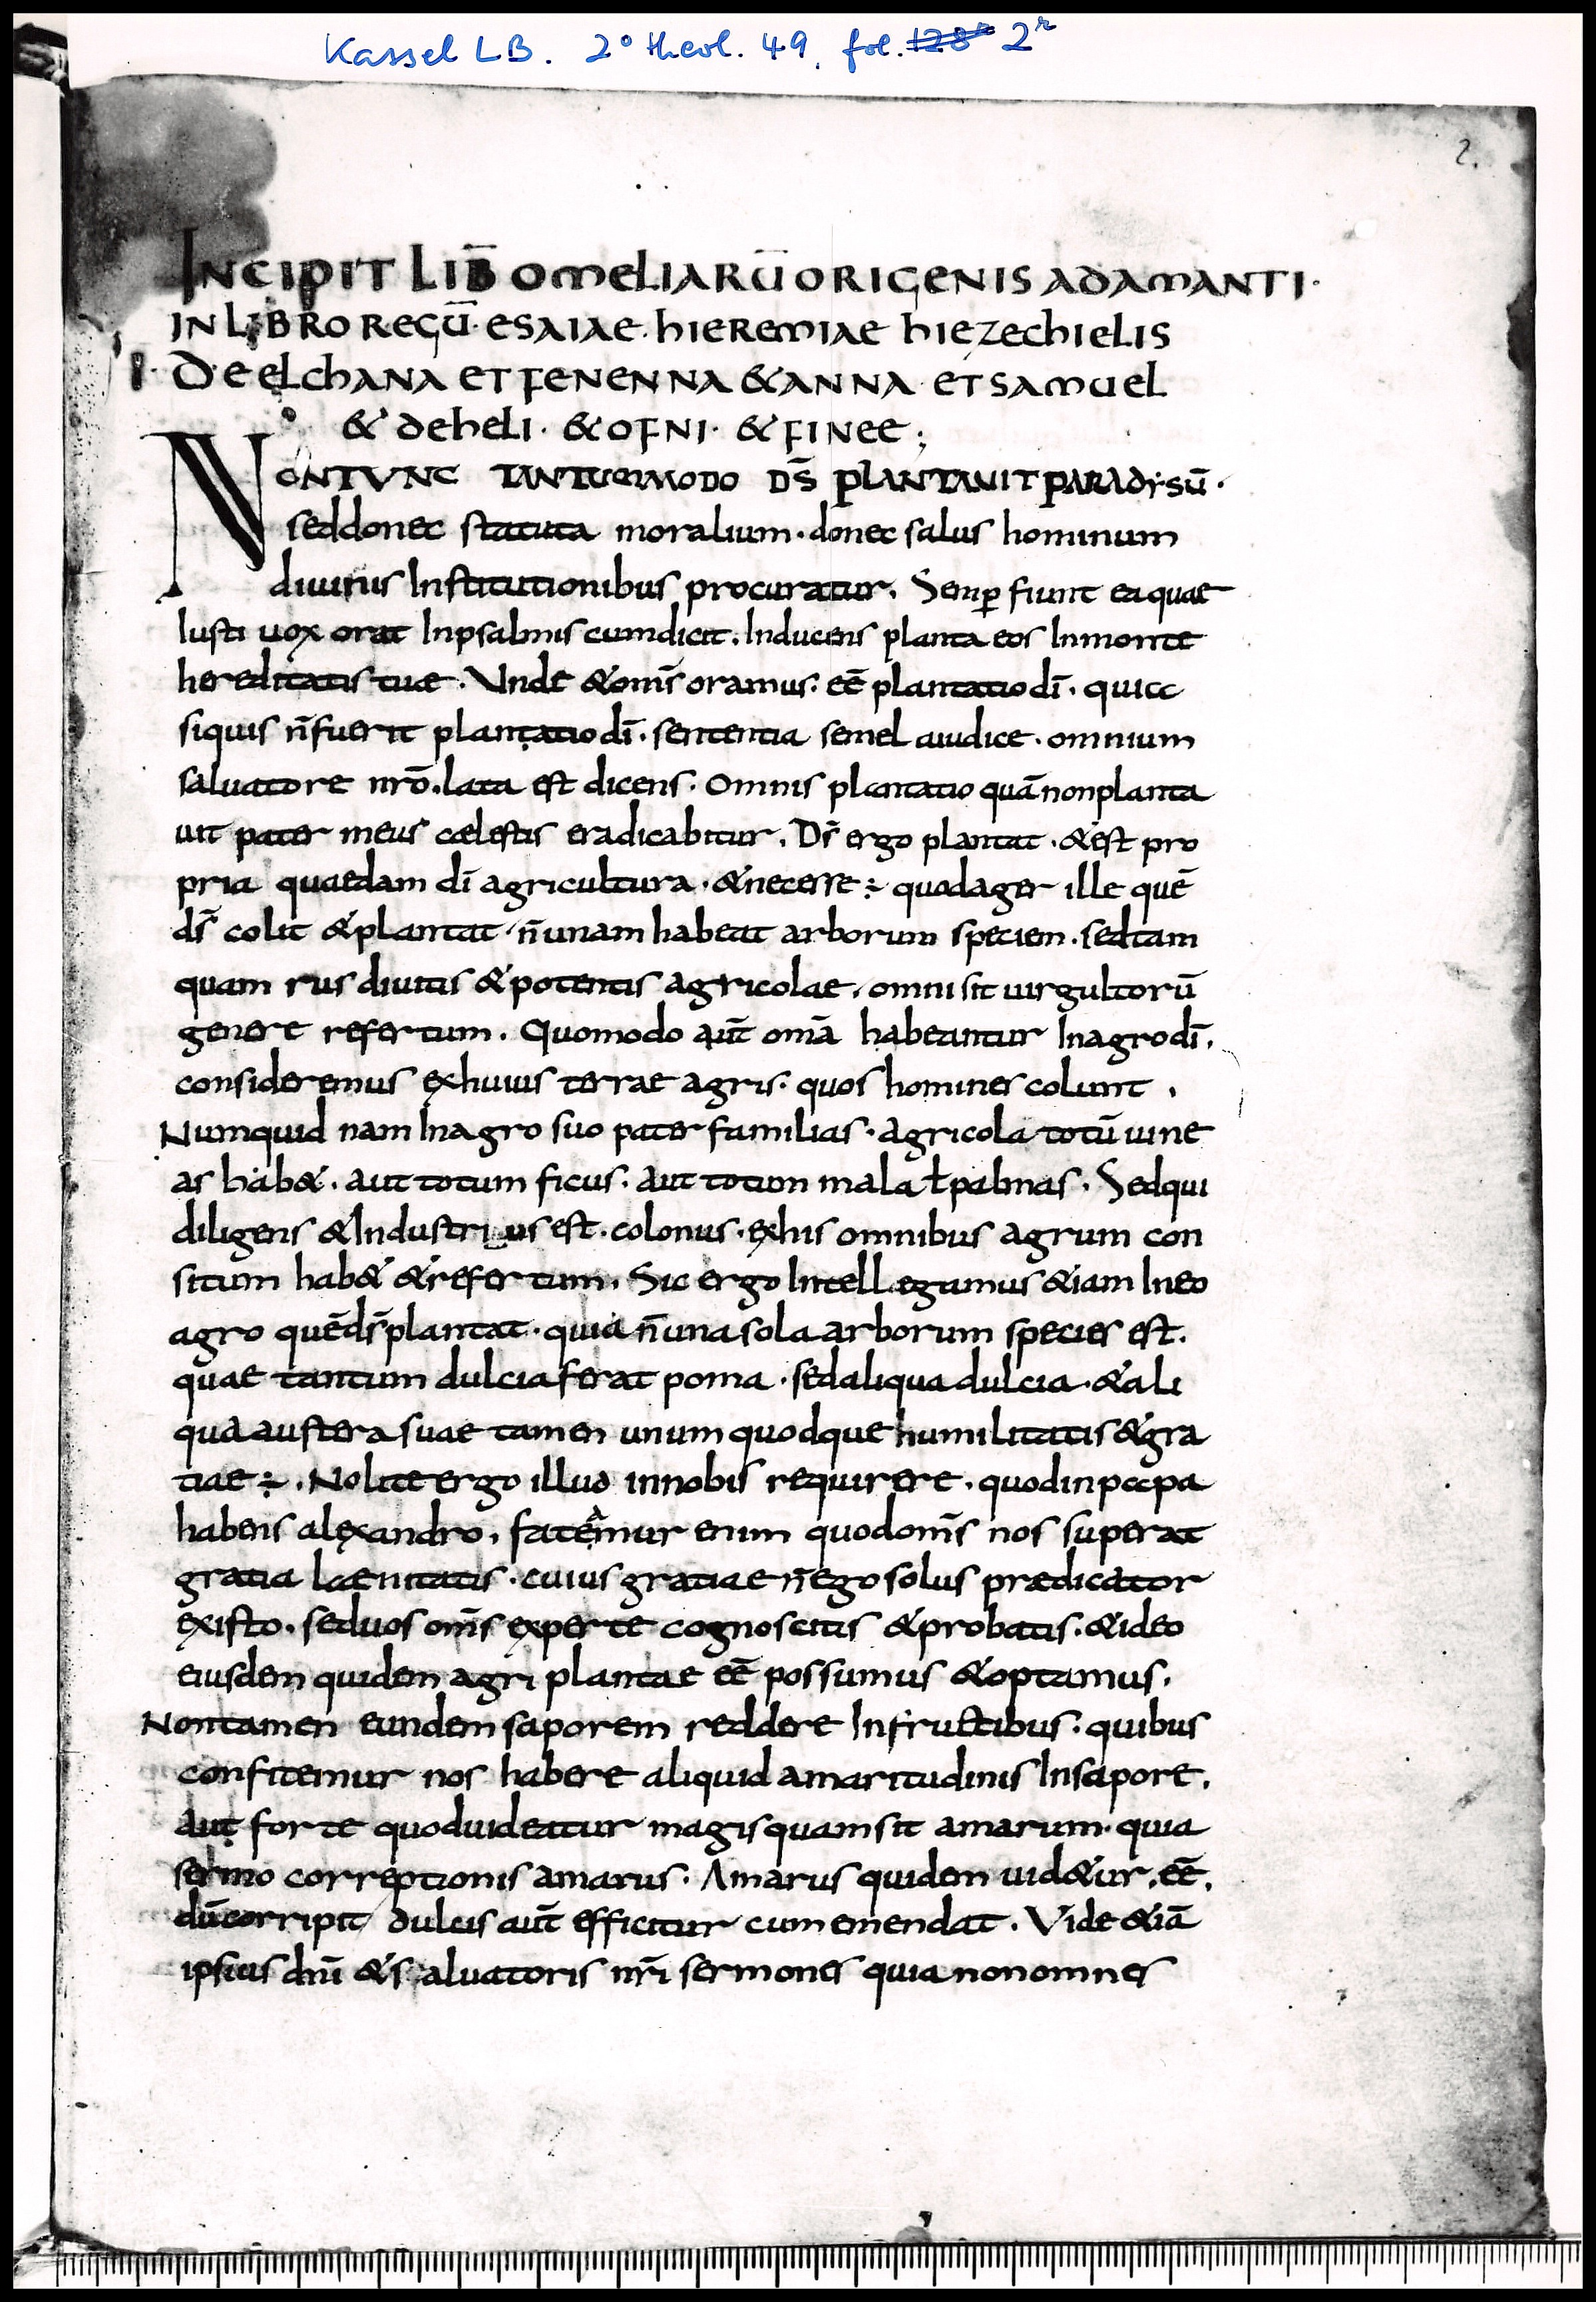 Kassel LB. 2° theol. 49, fol. 128r 2r
2.
INCIPIT LIB̄ OMELIARŪ ORIGENIS ADAMANTI·
IN LIBRO REGŪ· ESAIAE· HIEREMIAE HIEZECHIELIS
I· DE ELCHANA ET FENENNA & ANNA ET SAMUEL
& DE HELI· & OFNI· & FINEE;
NON TVNC TANTUMMODO DS̄ PLANTAUIT PARADYSŪ·
sed donec statuta moralium· donec salus hominum
diuinis Institutionibus procuratur. Semꝑ fiunt ea quae
Iusti uox orat In psalmis cum dicit. Inducens planta eos In monte
hereditatis tuae. Unde & om̄s oramus· eē plantatio dī· quia
siquis n̄ fuerit plantatio dī· sententia semel a iudice· omnium
saluatore nrō. lata est dicens· Omnis plantatio quā non planta
uit pater meus cælestis eradicabitur. Ds̄ ergo plantat· & est pro
pria quaedam dī agricultura· & necesse ÷ quod ager ille quē
ds̄ colit & plantat n̄ unam habeat arborum speciem· sed tam
quam rus diuitis & potentis agricolae, omni sit uirgultorū
genere refertum. Quomodo aut̄ om̄a habeantur In agro dī,
consideremus ex huius terrae agris· quos homines colunt.
Numquid nam In agro suo pater familias· agricola totū uine
as hab&. aut totum ficus· aut totum mala ł palmas. Sed qui
diligens & Industrius est· colonus· ex his omnibus agrum con
situm hab& & refertum. Sic ergo Intellegamus &iam In eo
agro quē ds̄ plantat· quia n̄ una sola arborum species est.
quae tantum dulcia ferat poma· sed aliqua dulcia· & ali
qua austera suae tamen unum quodque humilitatis & gra
tiae ÷. Nolite ergo illud in nobis requirere. quod in papa
habens alexandro, fatemur enim quod om̄s nos superat
gratia lænitatis· cuius gratiae n̄ ego solus prædicator
existo. sed uos om̄s experte cognoscitis & probatis· & ideo
eiusdem quidem agri plantae eē possumus & optamus.
Non tamen eundem saporem reddere In fructibus· quibus
confitemur nos habere aliquid amaritudinis In sapore.
aut forte quod uideatur magis quam sit amarum· quia
sermo correptionis amarus· Amarus quidem uid&ur, eē,
dū corripit dulcis aut̄ efficitur cum emendat. Vide &iā
ipsius dnī & saluatoris nr̄i sermones quia non omnes